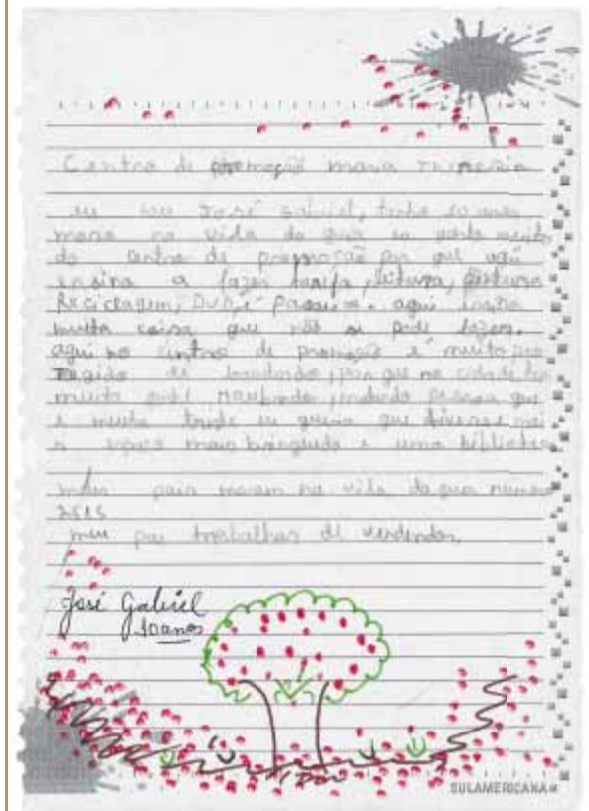 Centro de promoção maria
eu sou José Gabriel, tenho 10 anos
moro na vida da gua eu gosto muito
do centro de promoção por que aqui
ensina a fazer tarefa, leitura, pintura
Reciclagem, DVD, é passeios. aqui
muita coisa que não se pode fazer.
aqui no centro de promoção é muito pro
tegido de bandido, por que na cidade tem
muita gente roubando, matando pessoa que
é muito triste eu queria que tivesse mai
s espaço mais brinquedo e uma biblioteca
meus pais moram na vila da gua numero
2515
meu pai trabalhar de vendedor.
José Gabriel
10 anos
SULAMERICANA